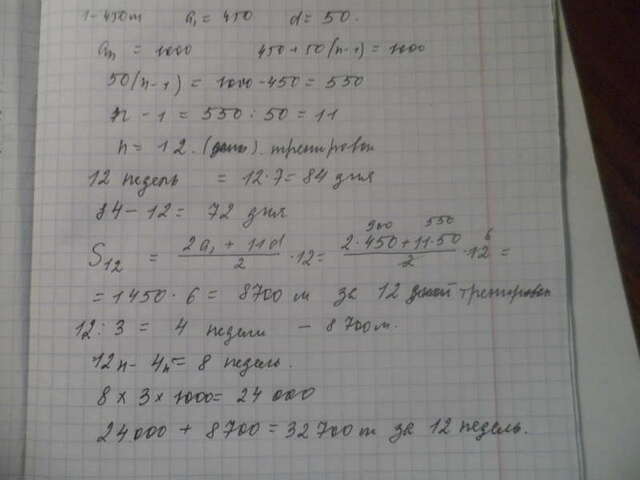 1 - 450 m a₁ = 450 d = 50.
aₙ = 1000 450 + 50(n-1) = 1000
50(n-1) = 1000 - 450 = 550
n - 1 = 550 : 50 = 11
n = 12. тренировок
12 недель = 12·7 = 84 дня
84 - 12 = 72 дня
S₁₂ = (2a₁ + 11d)/2 · 12 = (2·450 + 11·50)/2 · 12 = 900 550 6
= 1450 · 6 = 8700 м за 12 тренировок
12 : 3 = 4 недели - 8700 м.
12н - 4н = 8 недель.
8 x 3 x 1000 = 24 000
24000 + 8700 = 32700 m за 12 недель.